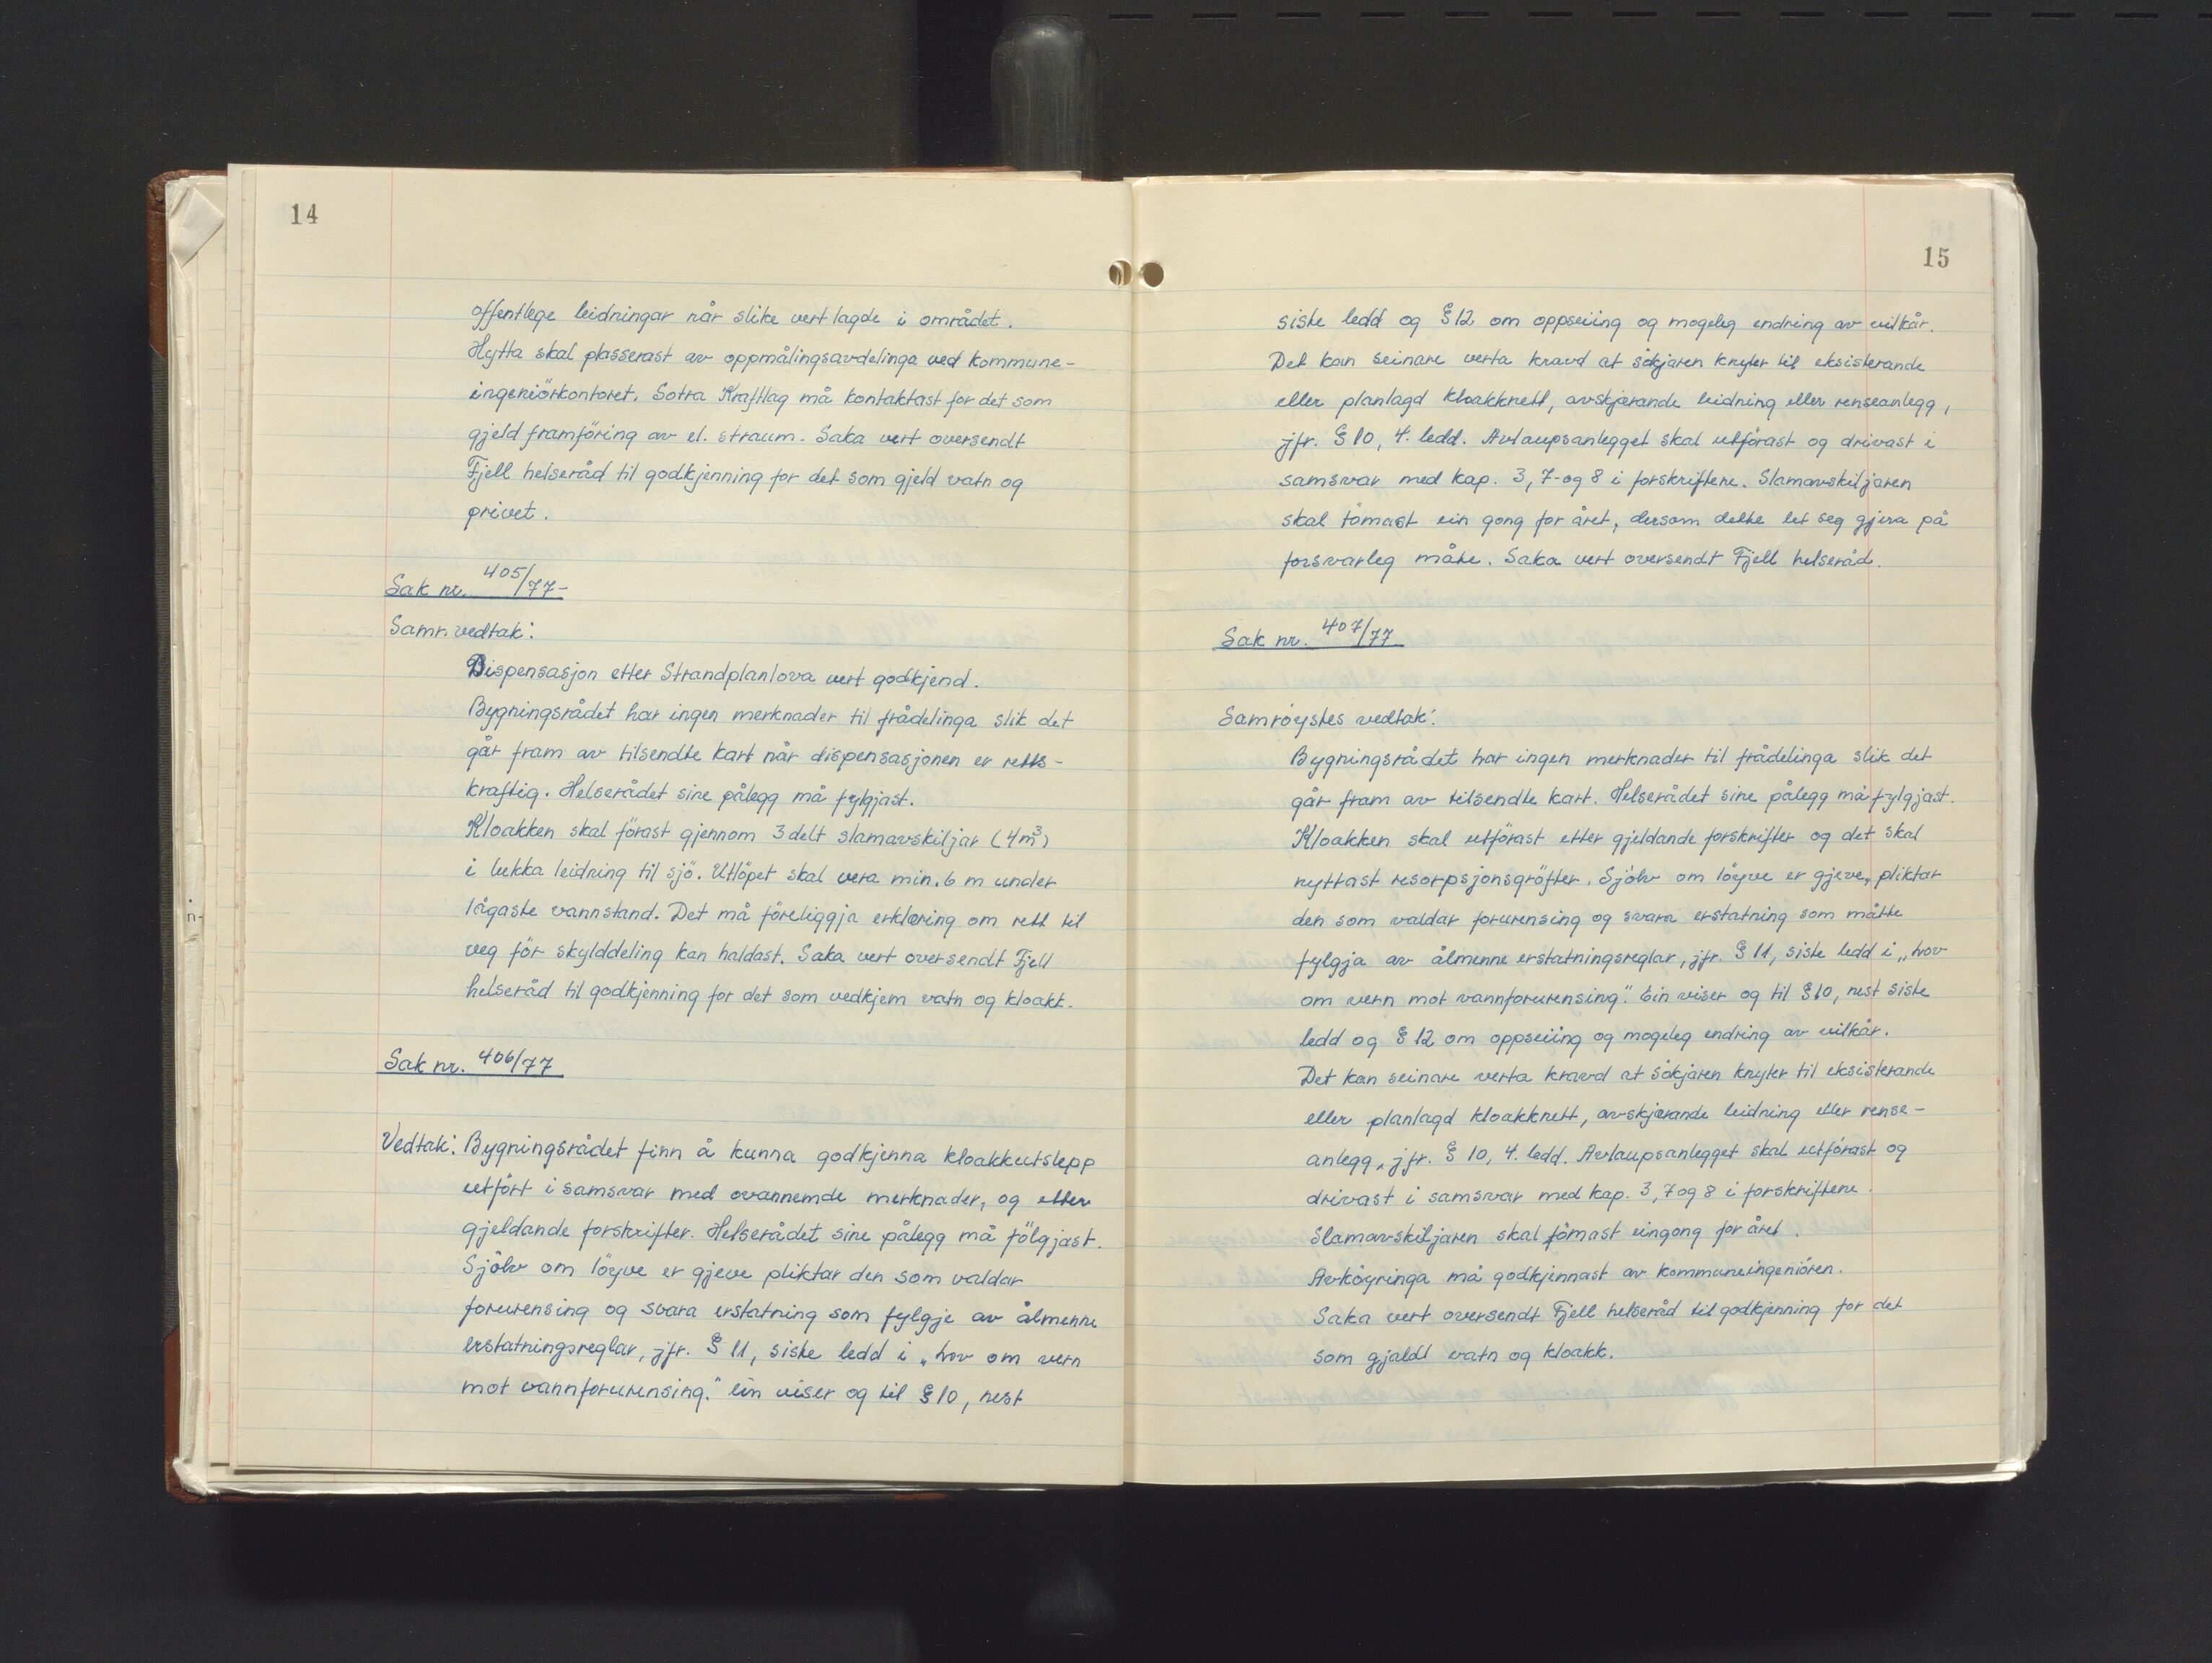 14
offentlege leidningar når slike vert lagde i området.
Hytta skal plasserast av oppmålingsavdelinga ved kommune-
ingeniörkontoret. Sotra Kraftlag må kontaktast for det som
gjeld framföring av el. straum. Saka vert oversendt
Fjell helseråd til godkjenning for det som gjeld vatn og
privet.
Sak nr. 405/77-
Samr. vedtak:
Dispensasjon etter Strandplanlova vert godkjend.
Bygningsrådet har ingen merknader til frådelinga slik det
går fram av tilsendte kart når dispensasjonen er retts-
kraftig. Helserådet sine pålegg må fylgjast.
Kloakken skal förast gjennom 3 delt slamavskiljar (4m³)
i lukka leidning til sjö. Utlöpet skal vera min. 6 m under
lågaste vannstand. Det må föreliggja erklæring om rett til
veg för skylddeling kan haldast. Saka vert oversendt Fjell
helseråd til godkjenning for det som vedkjem vatn og kloakk.
Sak nr. 406/77
Vedtak: Bygningsrådet finn å kunna godkjenna kloakkutslepp
utfört i samsvar med ovannemde merknader, og etter
gjeldande forskrifter. Helserådet sine pålegg må fölgjast.
Sjölv om löyve er gjeve pliktar den som valdar
forurensing og svara erstatning som fylgje av ålmenne
erstatningsreglar, jfr. § 11, siste ledd i „lov om vern
mot vannforurensing." Ein viser og til § 10, nest
15
siste ledd og § 12 om oppseiing og mogeleg endring av vilkår.
Det kan seinare verta kravd at sökjaren knyter til eksisterande
eller planlagd kloakknett, avskjærande leidning eller renseanlegg,
jfr. § 10, 4. ledd. Avlaupsanlegget skal utförast og drivast i
samsvar med kap. 3, 7- og 8 i forskriftene. Slamavskiljaren
skal tömast ein gong for året, dersom dette let seg gjera på
forsvarleg måte. Saka vert oversendt Fjell helseråd.
Sak nr. 407/77
Samröystes vedtak:
Bygningsrådet har ingen merknader til frådelinga slik det
går fram av tilsendte kart. Helserådet sine pålegg må fylgjast.
Kloakken skal utförast etter gjeldande forskrifter og det skal
nyttast resorpsjonsgröfter. Sjölv om löyve er gjeve, pliktar
den som valdar forurensing og svara erstatning som måtte
fylgja av ålmenne erstatningsreglar, jfr. § 11, siste ledd i „lov
om vern mot vannforurensing". Ein viser og til § 10, nest siste
ledd og § 12 om oppseiing og mogeleg endring av vilkår.
Det kan seinare verta kravd at sökjaren knyter til eksisterande
eller planlagd kloakknett, avskjærande leidning eller rense-
anlegg, jfr. § 10, 4. ledd. Avlaupsanlegget skal utförast og
drivast i samsvar med kap. 3, 7 og 8 i forskriftene.
Slamavskiljaren skal tömast eingong for året.
Avköyringa må godkjennast av kommuneingeniören.
Saka vert oversendt Fjell helseråd til godkjenning for det
som gjaldt vatn og kloakk.